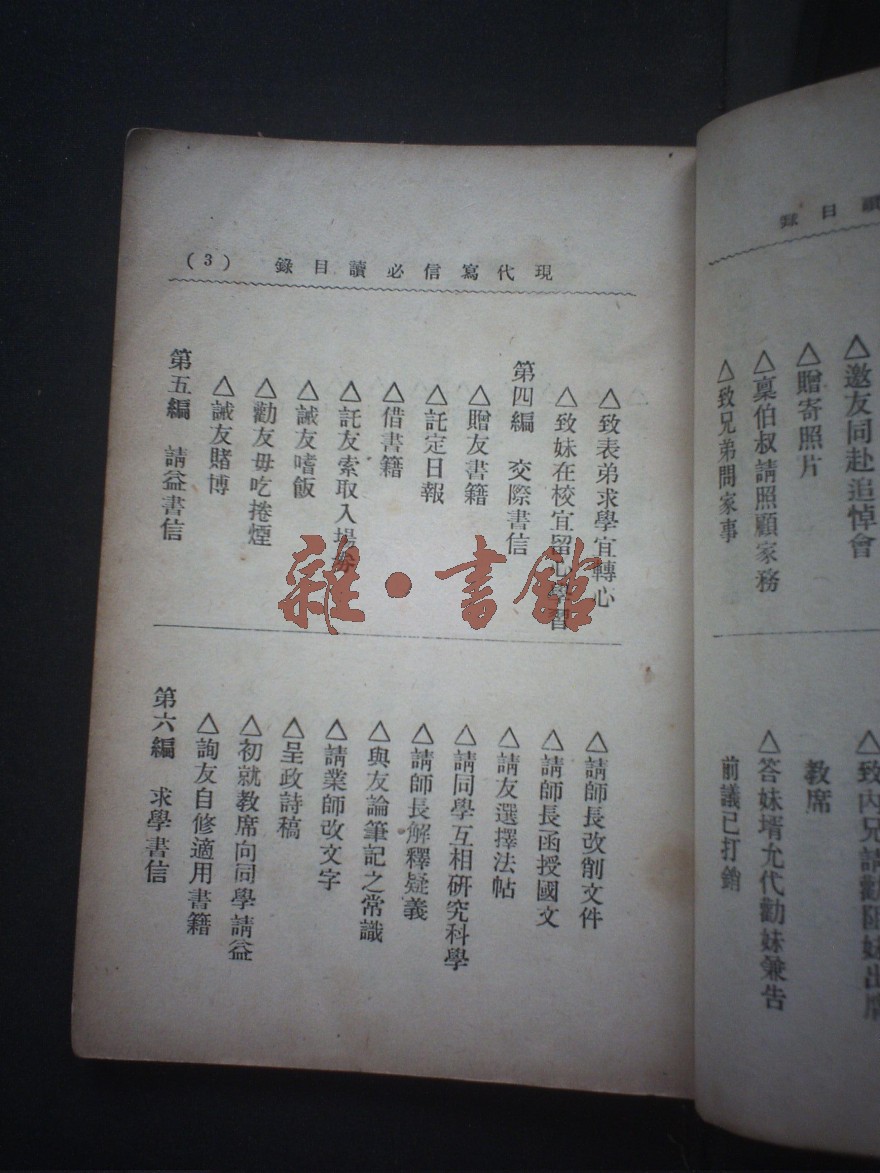 現代寫信必讀目錄 (3)
△致表弟求學宜轉心
△致妹在校宜留心學習
第四編 交際書信
△贈友書籍
△託定日報
△借書籍
△託友索取入場券
△誡友嗜飯
△勸友毋吃捲煙
△誡友賭博
第五編 請益書信
△請師長改削文件
△請師長函授國文
△請友選擇法帖
△請同學互相研究科學
△請師長解釋疑義
△與友論筆記之常識
△請業師改文字
△呈政詩稿
△初就教席向同學請益
△詢友自修適用書籍
第六編 求學書信
讀目錄
△邀友同赴追悼會
△贈寄照片
△稟伯叔請照顧家務
△致兄弟問家事
△致內兄請勸阻妹出席
教席
△答妹壻允代勸妹兼告
前議已打銷
雜·書館